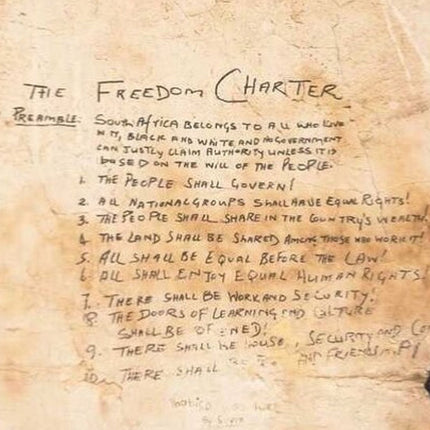 THE FREEDOM CHARTER
PREAMBLE: SOUTH AFRICA BELONGS TO ALL WHO LIVE
IN IT, BLACK AND WHITE AND NO GOVERNMENT
CAN JUSTLY CLAIM AUTHORITY UNLESS IT IS
BASED ON THE WILL OF THE PEOPLE.
1. THE PEOPLE SHALL GOVERN!
2. ALL NATIONAL GROUPS SHALL HAVE EQUAL RIGHTS!
3. THE PEOPLE SHALL SHARE IN THE COUNTRY'S WEALTH.
4. THE LAND SHALL BE SHARED AMONG THOSE WHO WORK IT!
5. ALL SHALL BE EQUAL BEFORE THE LAW!
6. ALL SHALL ENJOY EQUAL HUMAN RIGHTS!
7. THERE SHALL BE WORK AND SECURITY!
8. THE DOORS OF LEARNING AND CULTURE
SHALL BE OPENED!
9. THERE SHALL BE HOUSE, SECURITY AND CO
10. THERE SHALL BE AND FRIENDS